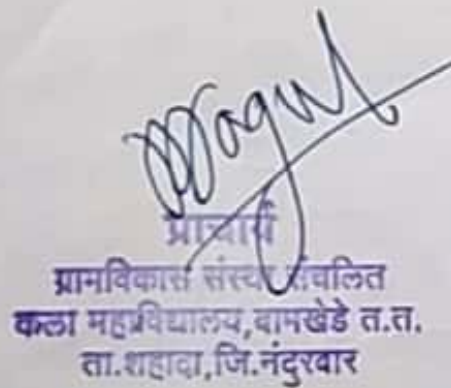 प्राचार्य
ग्रामविकास संस्था संचलित
कला महाविद्यालय,बामखेडे त.त.
ता.शहादा,जि.नंदुरबार